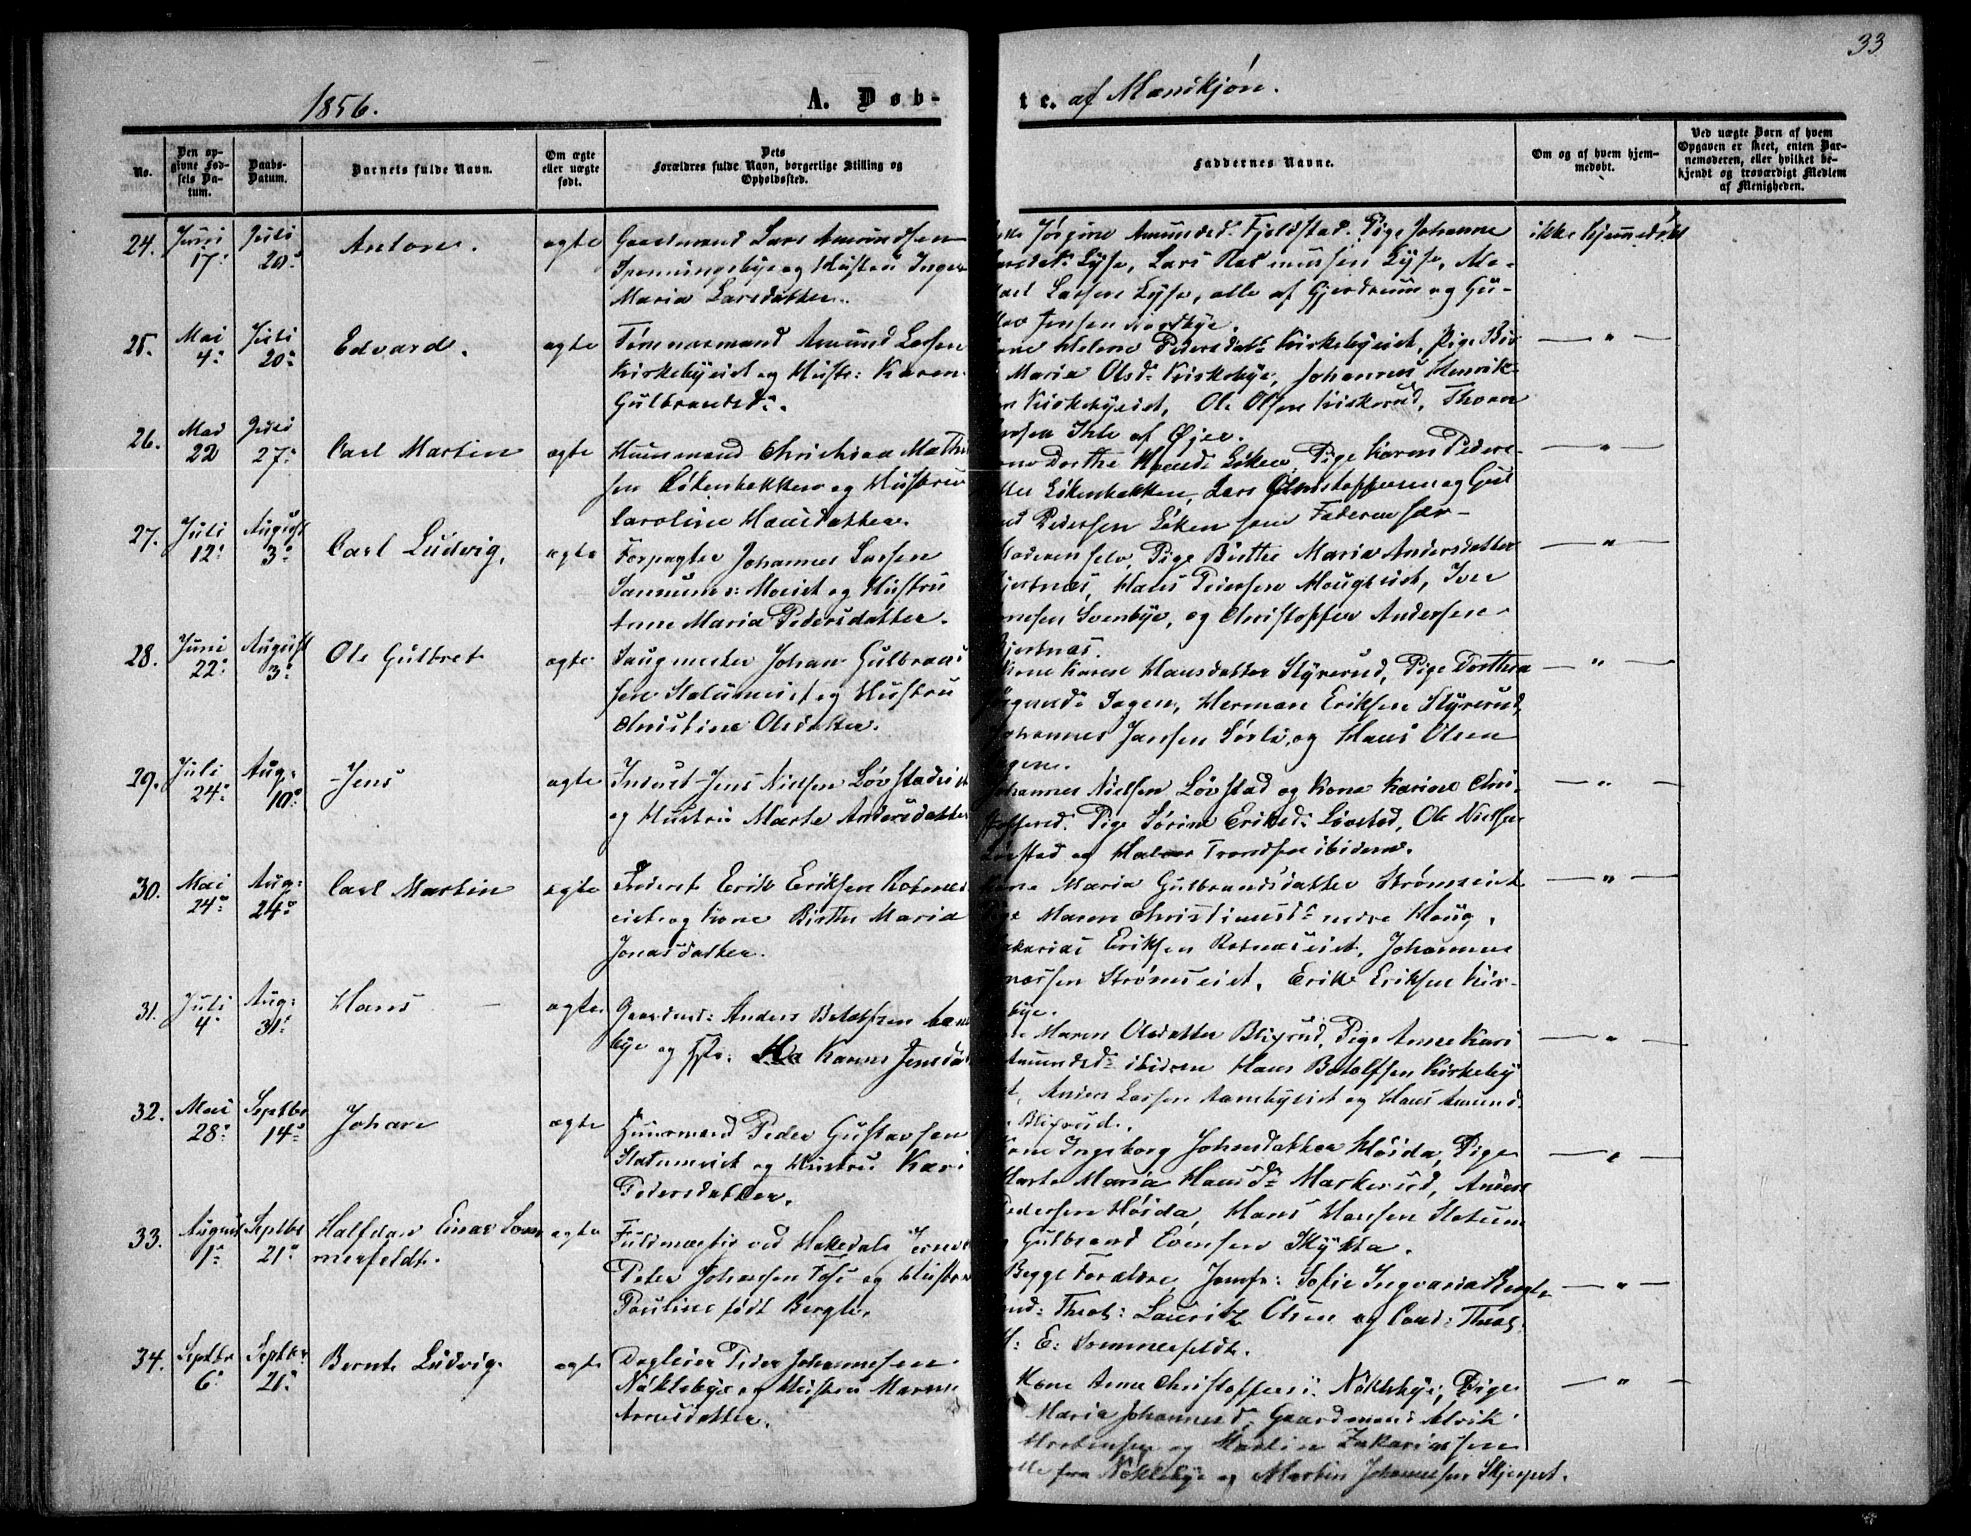 33
1856.
A. Døb-
te. af Mandkjøn.
No.
Den op-
givne Fød-
sels Da-
tum.
Daabs-
Datum.
Barnets fulde Navn.
Om ægte
eller uægte
født.
Dets
Forældres fulde Navn, borgerlige Stilling og
Opholdssted.
Faddernes Navne.
Om og af hvem hjem-
medøbt.
Ved uægte Børn af hvem
Opgaven er skeet, enten Bar-
nemoderen, eller hvilket be-
kjendt og troværdigt Medlem
af Menigheden.
24. Juni 17. Juli 20.
Anton.
ægte
Gaardmand Lars Amundsen
Spenningsbye og Hustru Inger
Maria Larsdatter.
Jørgine Amundsd. Fjeldstad. Pige Johanne
Lysø, Lars Rasmussen Lysø,
Larsen Lysø, alle af Gjerdrum og Gu-
Jensen Nordbye.
ikke hjemmedøbt
25. Mai 4. Juli 20.
Edvard.
ægte
Tømmermand Amund Larsen
Kirkebyeiet og Hustr: Karen
Gulbrandsd.
Helene Pedersdatr Kirkebyeiet, Pige Bir
Maria Olsdr Kirkebye, Johannes Henrik-
Kirkebyeiet, Ole Olsen Kiskerud, Thom
Ihle af Øjer.
— " —
26. Mai 22 Juli 27.
Carl Martin
ægte
Huusmand Christian Mathi
sen Løkenbakken og Hustru
Caroline Hansdatter.
Dorthe Hansd. Løken, Pige Karen Peders-
Løkenbakken, Lars Christoffersen og Gul
Pedersen Løken som Faderen sær-
— " —
27. Juli 12. August 3.
Carl Ludvig.
ægte
Forpagter Johannes Larsen
Sannumseiet og Hustru
Anne Maria Pedersdatter.
Moderen selv, Pige Birthe Maria Andersdatter
Kjertnæs, Hans Pedersen Hougseiet, Iver
Svenbye, og Christoffer Andersen
Kjertnæs.
— " —
28. Juni 22. August 3.
Ole Gulbret
ægte
Saugmester Johan Gulbrand
sen Slatumeiet og Hustru
Christine Olsdatter.
Kone Karen Hansdatter Styrerud, Pige Dorthea
Hagen, Herman Eriksen Styrerud,
Johannes Jansen Sørlie, og Hans Olsen
— " —
29. Juli 24. Aug: 10.
Jens
ægte
Inderst Jens Nielsen Løvstadeiet
og Hustru Marte Andersdatter
Johannes Nielsen Løvstad og Kone Karine Chri-
stoffersd. Pige Sørine Eriksd. Løvstad, Ole Nielsen
Løvstad og Halvor Trondsen ibidem.
— " —
30. Mai 24. Aug: 24.
Carl Martin
ægte
Inderst Erik Eriksen Rotnæs
eiet og Kone Birthe Maria
Jonasdatter.
Kone Maria Gulbrandsdatter Strømseiet
Pige Maren Christiansdr nedre Houg,
Zakarias Eriksen Rotnæseiet, Johannes
Strømseiet, Erik Eriksen Kir-
kebye.
— " —
31. Juli 4. Aug: 31.
Hans
ægte
Gaardm: Anders Botolfsen Aam
bye og Hstr: Karen Jensdat
Maren Olsdatter Bligrud, Pige Anne Kari
Amundsdr ibidem Hans Botolfsen Kirkeby
Anders Larsen Aambyeiet og Hans Amund-
Bligrud.
— " —
32. Mai 28. Septbr 14.
Johan
ægte
Huusmand Peder Gustavsen
Slatumeiet og Hustru Kari
Pedersdatter.
Kone Ingeborg Johnsdatter Høida, Pige
Marte Maria Hansdr Markerud, Anders
Pedersen Høida, Hans Hansen Slatum
Gulbrand Evensen Skytta.
— " —
33. August 1. Septbr 21.
Halfdan Einar Som-
merfeldt.
ægte
Fuldmægtig ved Hakedals Jernv
Peter Johansen Foss og Hustru
Pauline født Bergh.
Begge Forældre, Jomfr: Sofie Ingvaria Bergh,
Cand: Theol: Lauritz Olsen og Cand: Theol:
H: E: Sommerfeldt.
— " —
34. Septbr 6. Septbr 21.
Bernt Ludvig.
ægte
Dagleier Peder Johannesen
Nøklebye og Hustru Maren
Arnesdatter.
Kone Anne Christoffersd. Nøklebye, Pige
Maria Johannesd. Gaardmand Alrik
Mortensen og Martin Zakariassen
alle fra Nøklebye og Martin Johannesen Skjerpet.
— " —